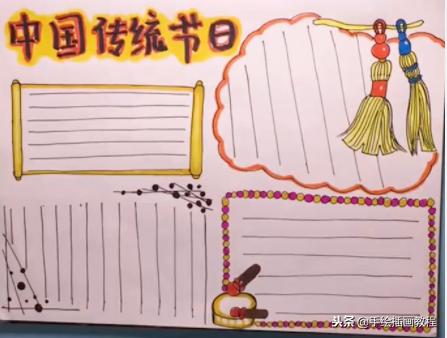 中国传统节日
头条@手绘插画教程